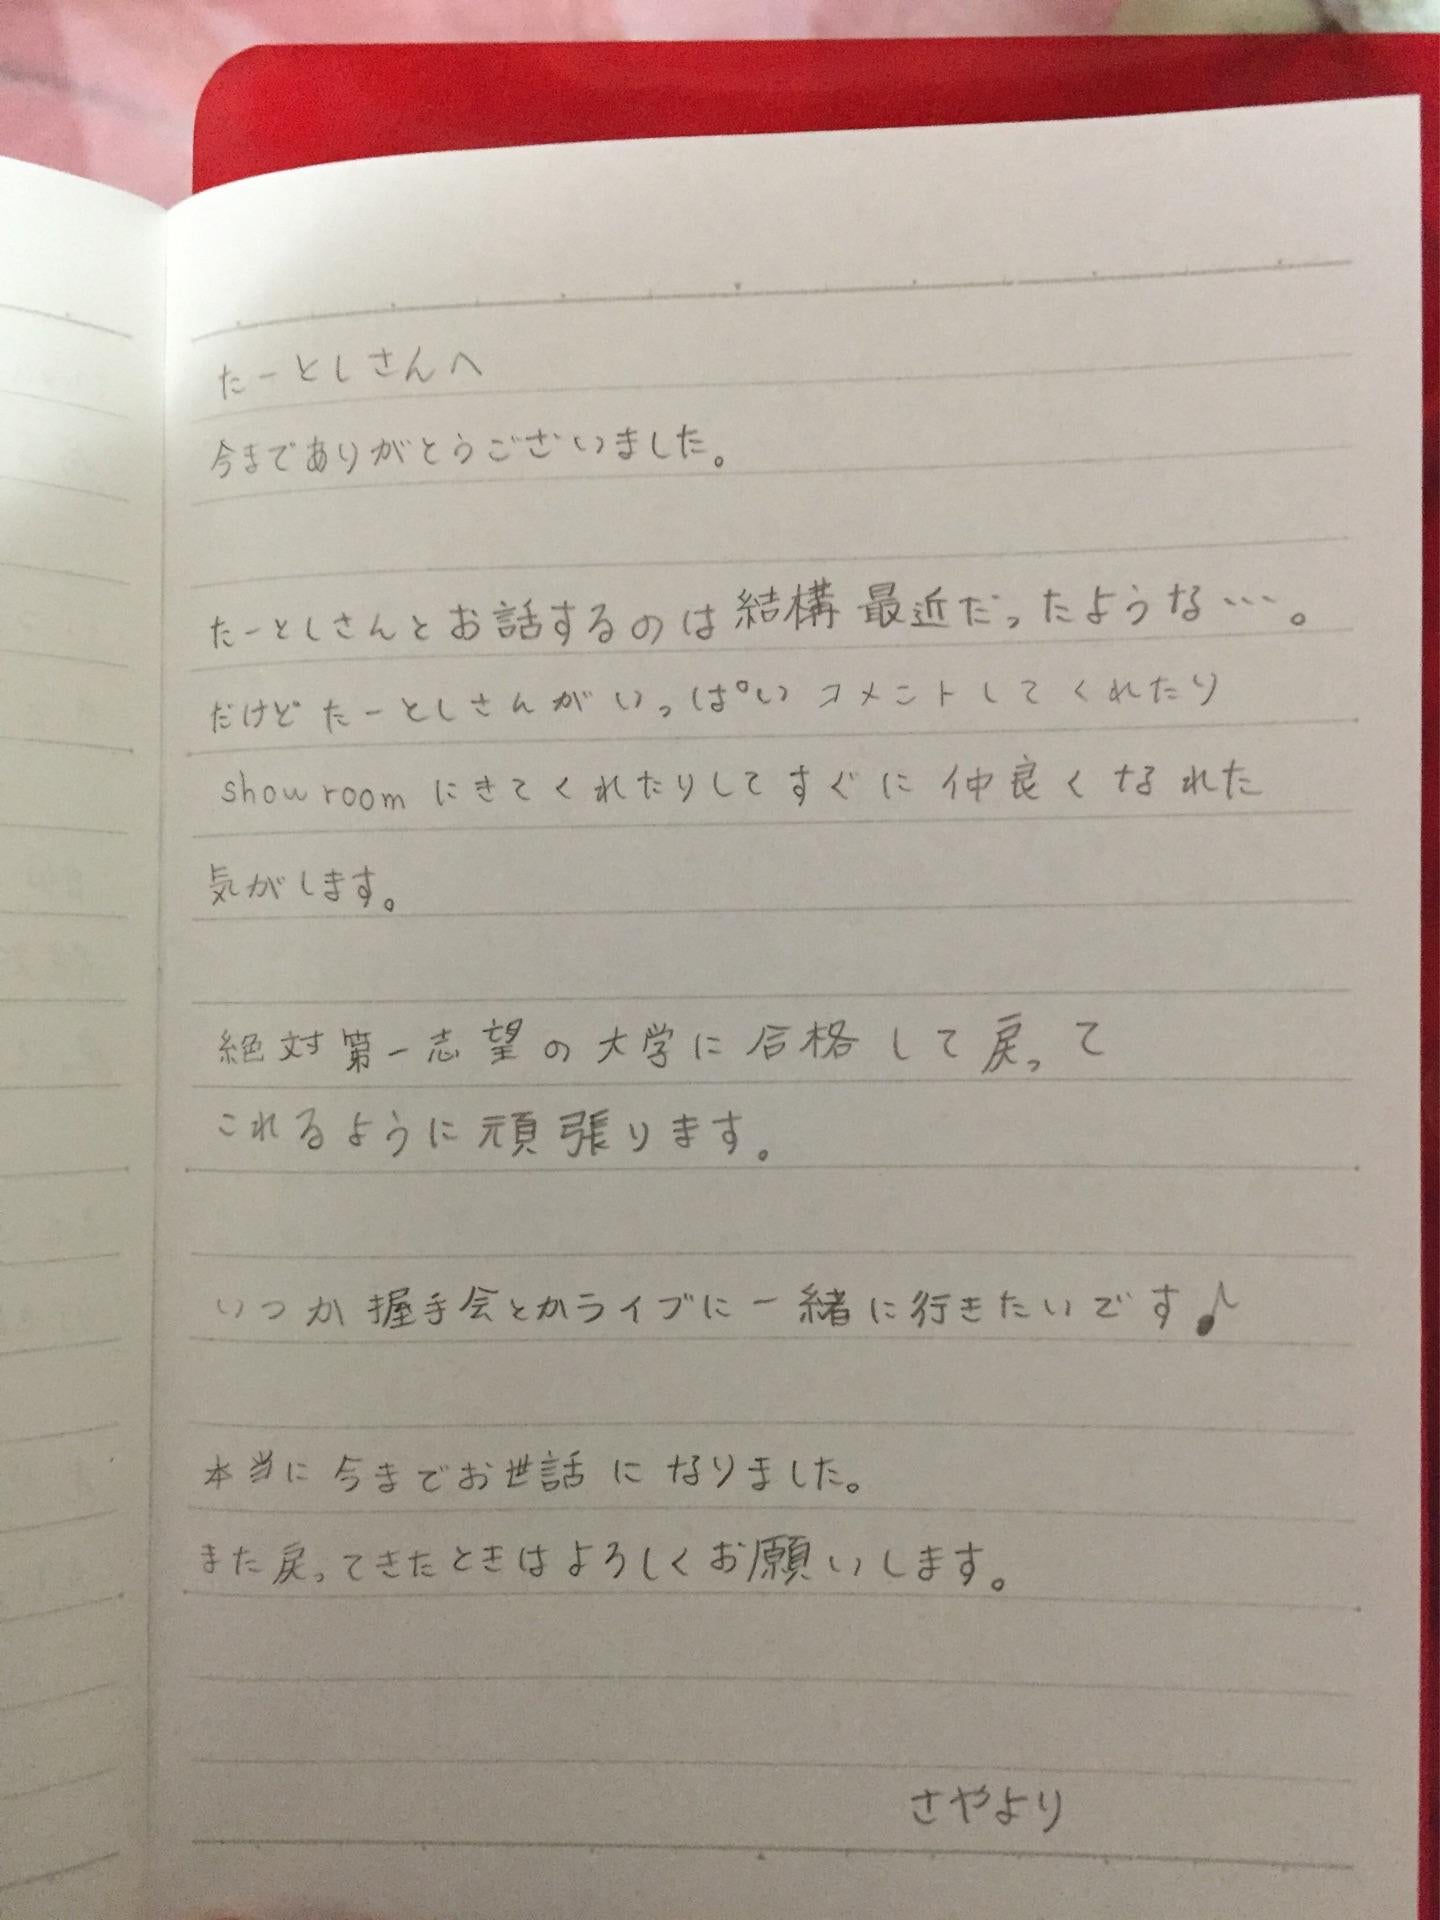 たーとしさんへ
今までありがとうございました。
たーとしさんとお話するのは結構最近だったような…。
だけどたーとしさんがいっぱいコメントしてくれたり
showroomにきてくれたりしてすぐに仲良くなれた
気がします。
絶対第一志望の大学に合格して戻って
これるように頑張ります。
いつか握手会とかライブに一緒に行きたいです♪
本当に今までお世話になりました。
また戻ってきたときはよろしくお願いします。
さやより